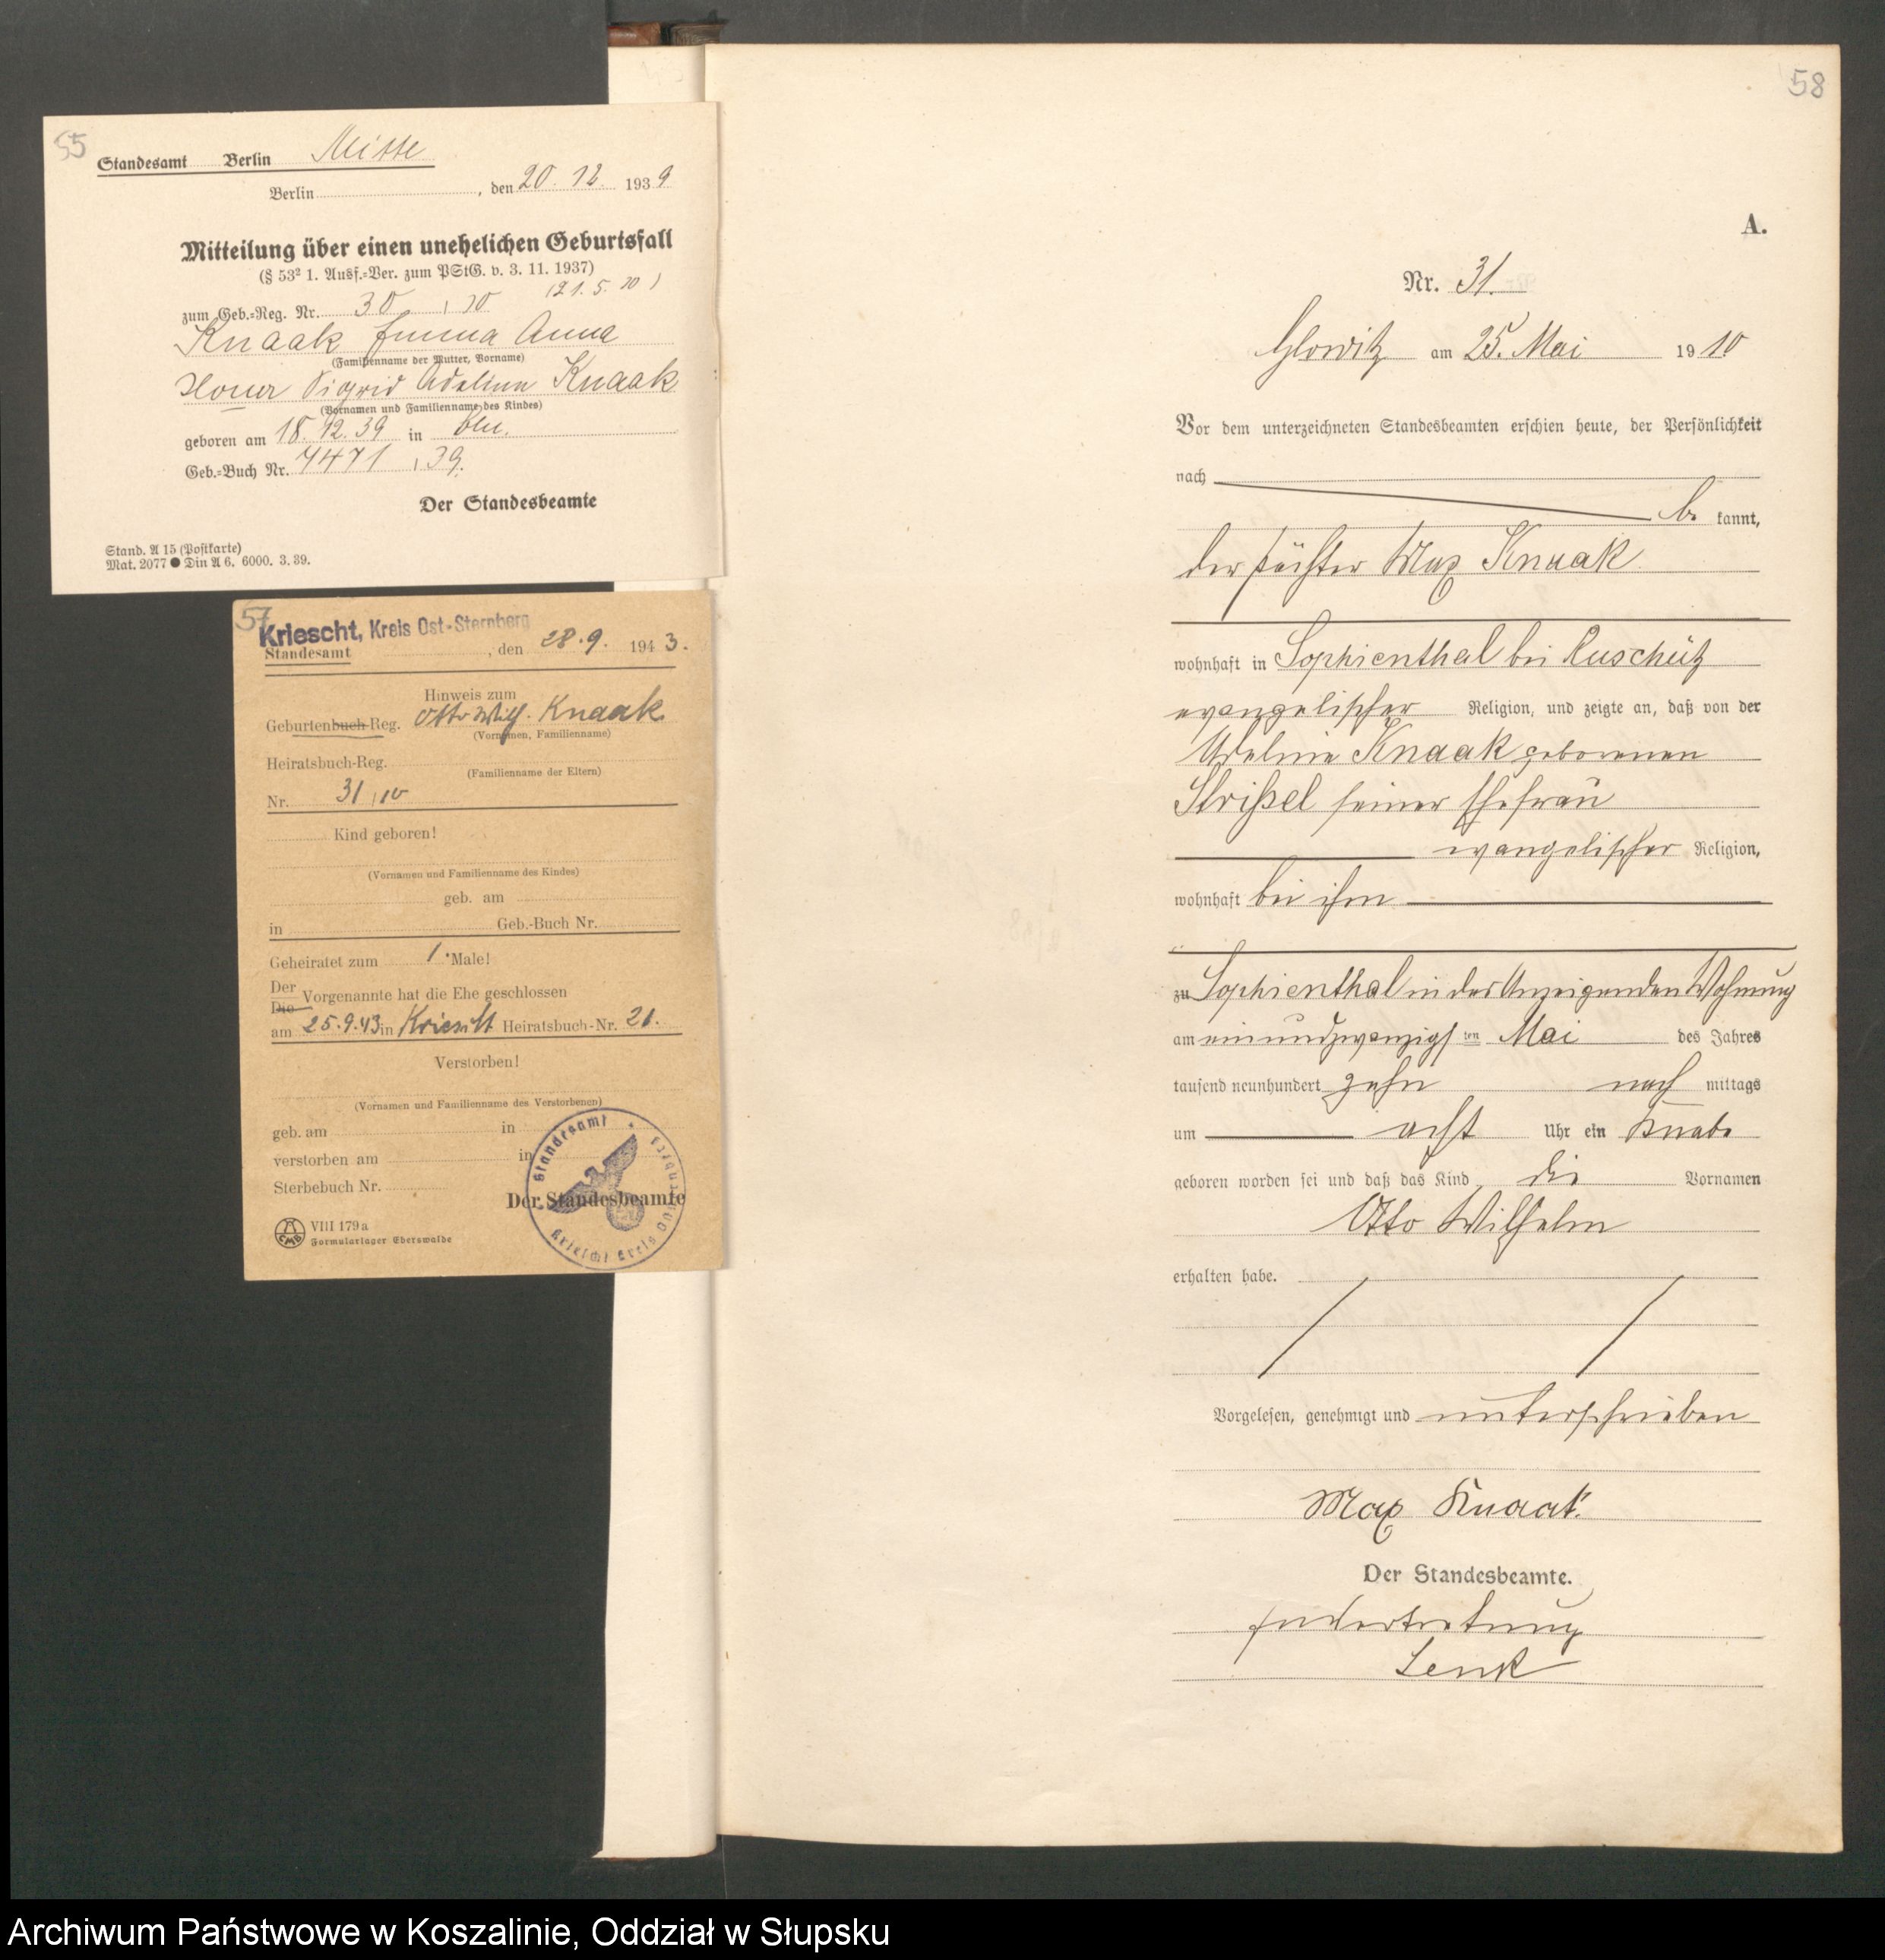 55
Standesamt Berlin Mitte
Berlin , den 20. 12. 1939
Mitteilung über einen unehelichen Geburtsfall
(§ 53² 1. Ausf.-Ver. zum PStG. v. 3. 11. 1937)
(21. 5. 10)
zum Geb.-Reg. Nr. 30 / 10
Knaak Emma Anna
(Familienname der Mutter, Vorname)
Sigrid Adeline Knaak
(Vornamen und Familienname des Kindes)
geboren am 18. 12. 39 in Bln.
Geb.-Buch Nr. 4471 / 39.
Der Standesbeamte
Stand. A 15 (Postkarte)
Mat. 2077 ● Din A 6. 6000. 3. 39.
57
Kriescht, Kreis Ost-Sternberg
Standesamt , den 28. 9. 1943.
Hinweis zum
Geburtenbuch-Reg. Otto Wilh. Knaak
(Vornamen, Familienname)
Heiratsbuch-Reg.
(Familienname der Eltern)
Nr. 31/10
Kind geboren!
(Vornamen und Familienname des Kindes)
geb. am
in Geb.-Buch Nr.
Geheiratet zum 1. Male!
Der
Die Vorgenannte hat die Ehe geschlossen
am 25.9.43 in Kriescht Heiratsbuch-Nr. 21.
Verstorben!
(Vornamen und Familienname des Verstorbenen)
geb. am in
verstorben am in
Sterbebuch Nr.
Der Standesbeamte
Standesamt
Kriescht Kreis
VIII 179a
Formularlager Eberswalde
58
A.
Nr. 31.
Glowitz am 25. Mai 1910
Vor dem unterzeichneten Standesbeamten erschien heute, der Persönlichkeit
nach
be kannt,
der Pächter Max Knaak
wohnhaft in Sophienthal bei Ruschütz
evangelischer Religion, und zeigte an, daß von der
Adeline Knaak geborenen
Strißel seiner Ehefrau
evangelischer Religion,
wohnhaft bei ihm
zu Sophienthal in des Anzeigenden Wohnung
am einundzwanzigs ten Mai des Jahres
tausend neunhundert zehn nach mittags
um acht Uhr ein Knabe
geboren worden sei und daß das Kind die Vornamen
Otto Wilhelm
erhalten habe.
Vorgelesen, genehmigt und unterschrieben
Max Knaak.
Der Standesbeamte.
In Vertretung
Lenk
Archiwum Państwowe w Koszalinie, Oddział w Słupsku